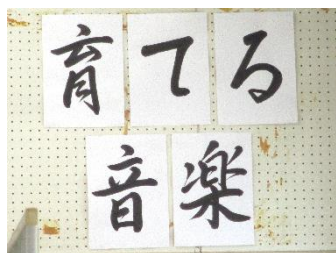 育てる
音楽